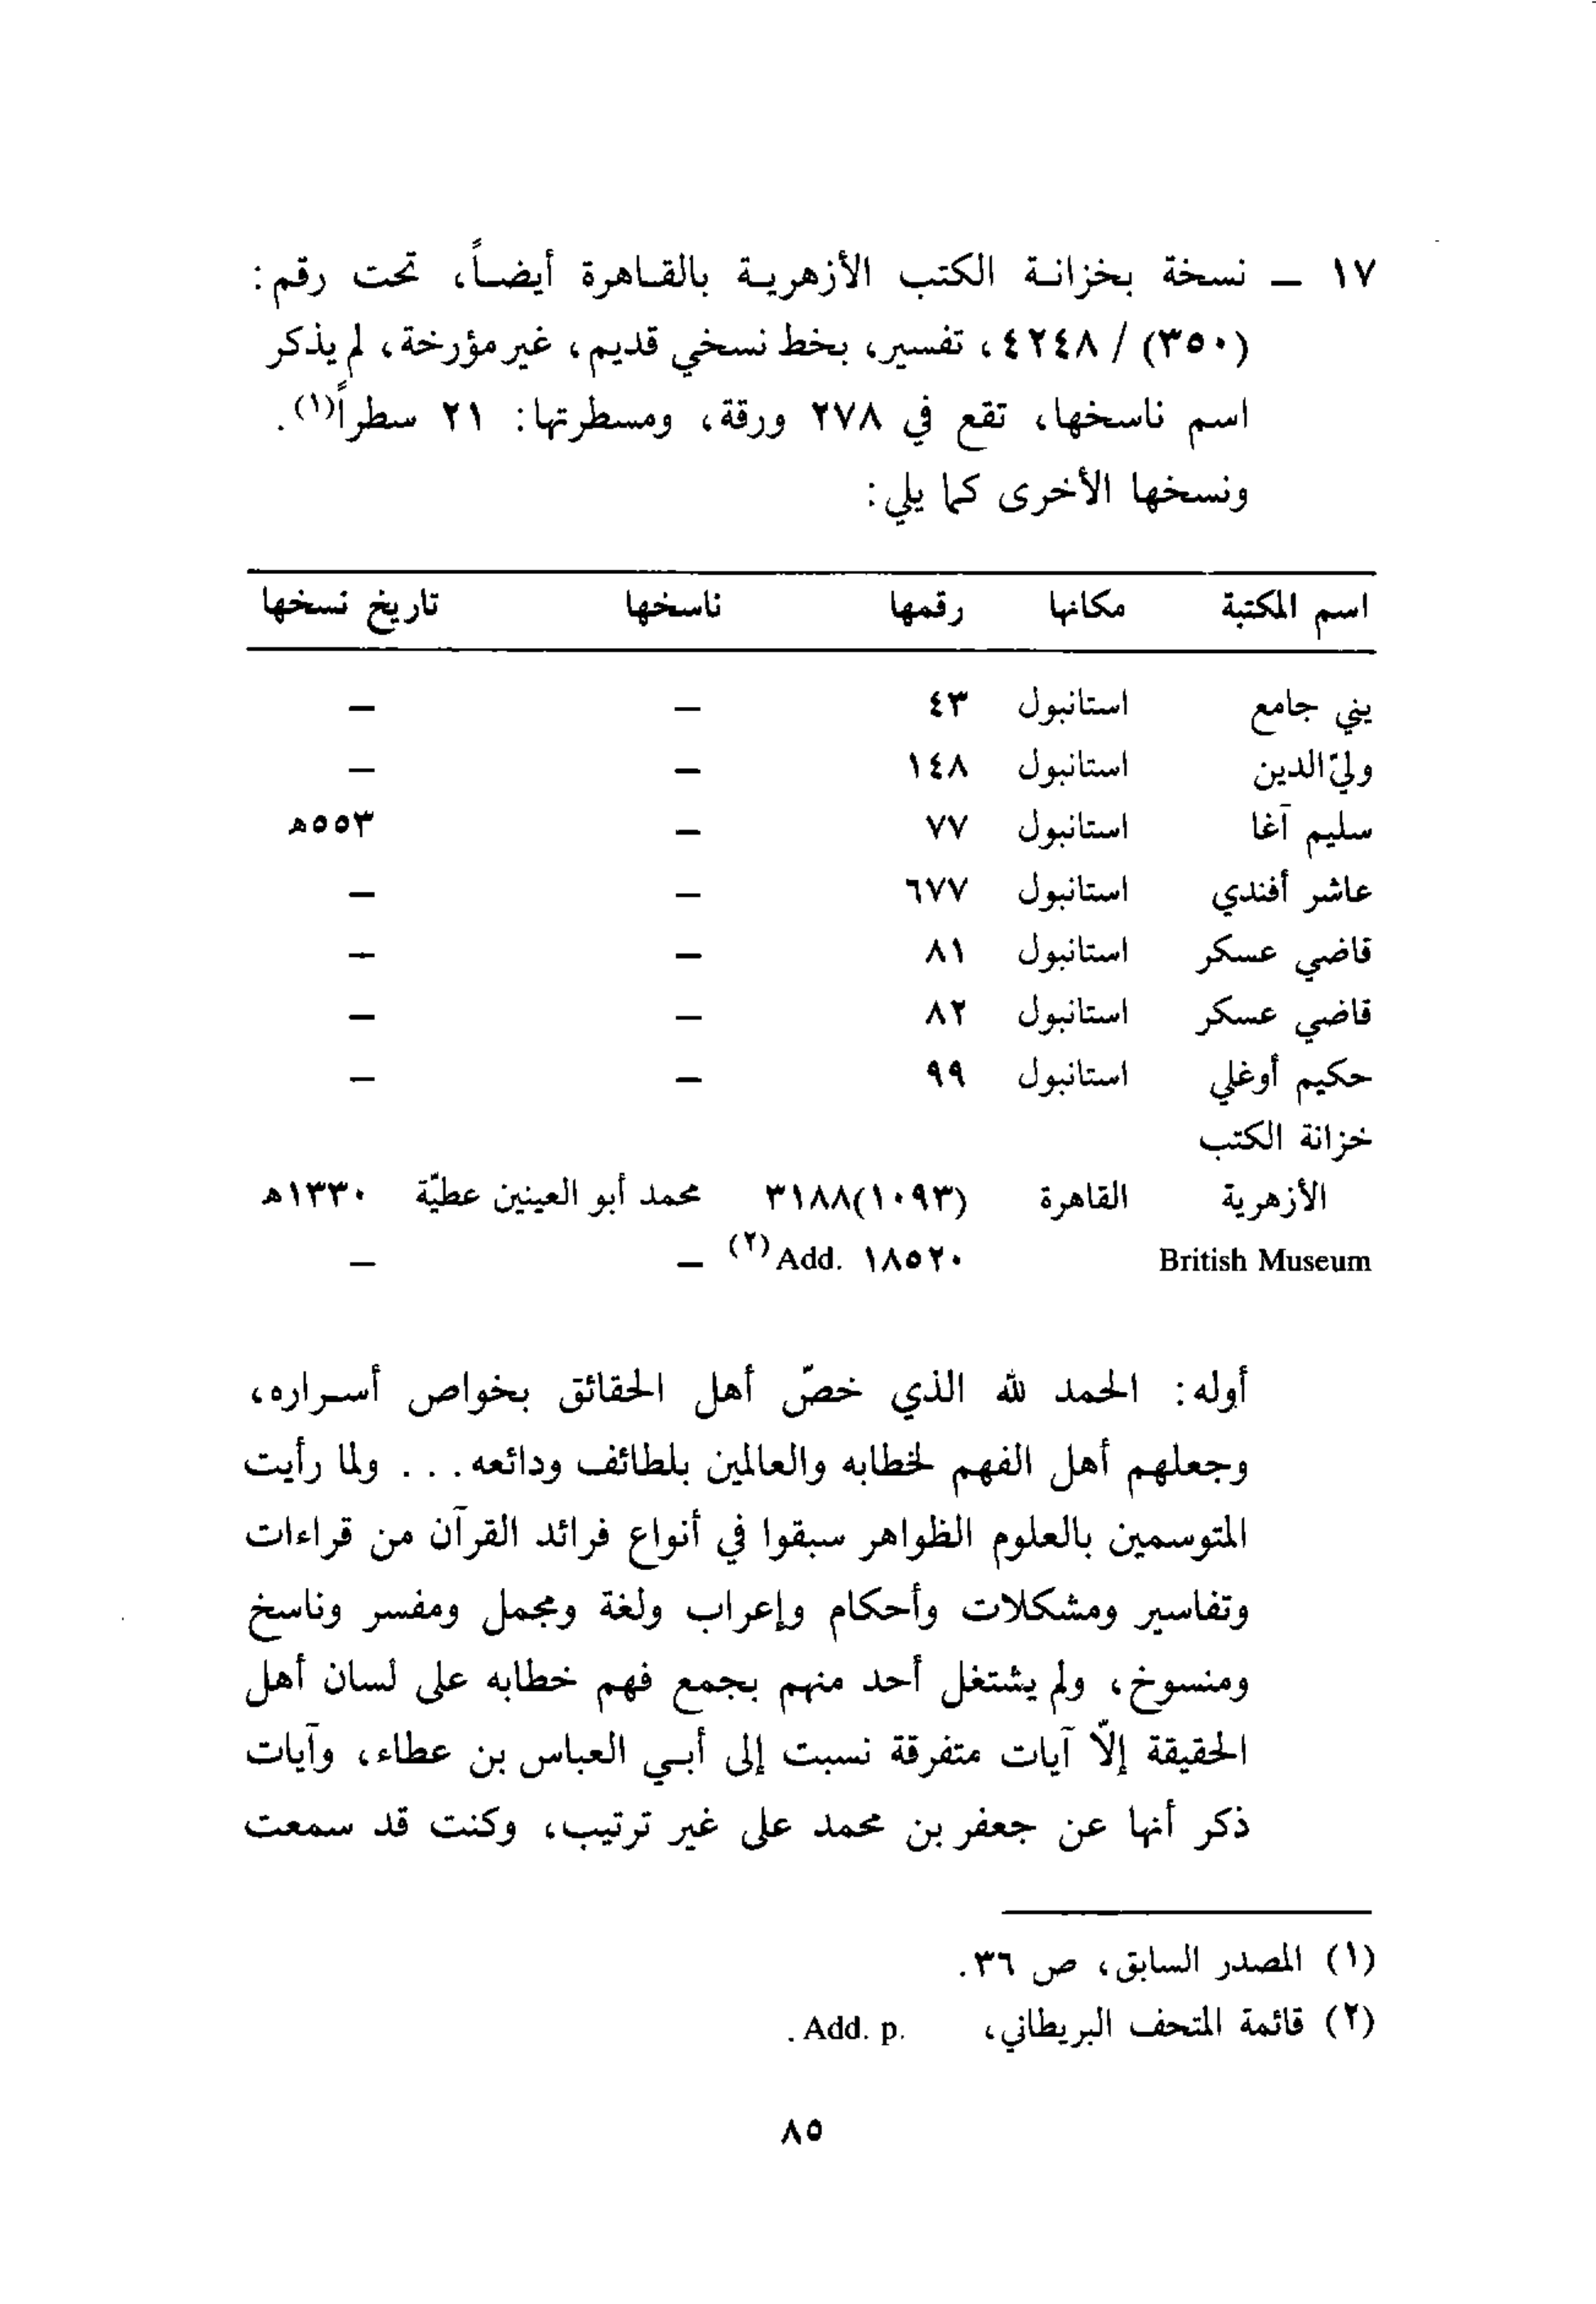 ١٧ ــ نسخة بخزانة الكتب الأزهرية بالقاهرة أيضاً، تحت رقم:
(٣٥٠) / ٤٢٤٨، تفسير، بخط نسخي قديم، غير مؤرخة، لم يذكر
اسم ناسخها، تقع في ٢٧٨ ورقة، ومسطرتها: ٢١ سطراً(١).
ونسخها الأخرى كما يلي:
اسم المكتبة مكانها رقمها ناسخها تاريخ نسخها
يني جامع استانبول ٤٣ – –
وليّ الدين استانبول ١٤٨ – –
سليم آغا استانبول ٧٧ – ٥٥٣هـ
عاشر أفندي استانبول ٦٧٧ – –
قاضي عسكر استانبول ٨١ – –
قاضي عسكر استانبول ٨٢ – –
حكيم أوغلي استانبول ٩٩ – –
خزانة الكتب
الأزهرية القاهرة (١٠٩٣)٣١٨٨ محمد أبو العينين عطيّة ١٣٣٠هـ
British Museum Add. ١٨٥٢٠(٢) – –
أوله: الحمد لله الذي خصّ أهل الحقائق بخواص أسراره،
وجعلهم أهل الفهم لخطابه والعالمين بلطائف ودائعه... ولما رأيت
المتوسمين بالعلوم الظواهر سبقوا في أنواع فرائد القرآن من قراءات
وتفاسير ومشكلات وأحكام وإعراب ولغة ومجمل ومفسر وناسخ
ومنسوخ، ولم يشتغل أحد منهم بجمع فهم خطابه على لسان أهل
الحقيقة إلّا آيات متفرقة نسبت إلى أبي العباس بن عطاء، وآيات
ذكر أنها عن جعفر بن محمد على غير ترتيب، وكنت قد سمعت
(١) المصدر السابق، ص ٣٦.
(٢) قائمة المتحف البريطاني، Add. p.‎ .
٨٥